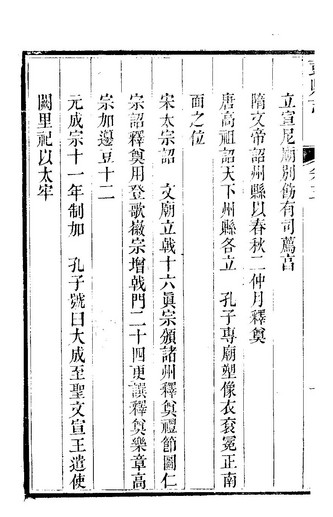 立宣尼廟别飭有司薦亯
隋文帝詔州縣以春秋二仲月釋奠
唐高祖詔天下州縣各立　孔子專廟塑像衣袞冕正南
面之位
宋太宗詔　文廟立戟十六眞宗頒諸州釋奠禮節圖仁
宗詔釋奠用登歌徽宗增戟門二十四更譔釋奠樂章高
宗加籩豆十二
元成宗十一年制加　孔子號曰大成至聖文宣王遣使
闕里祀以太牢